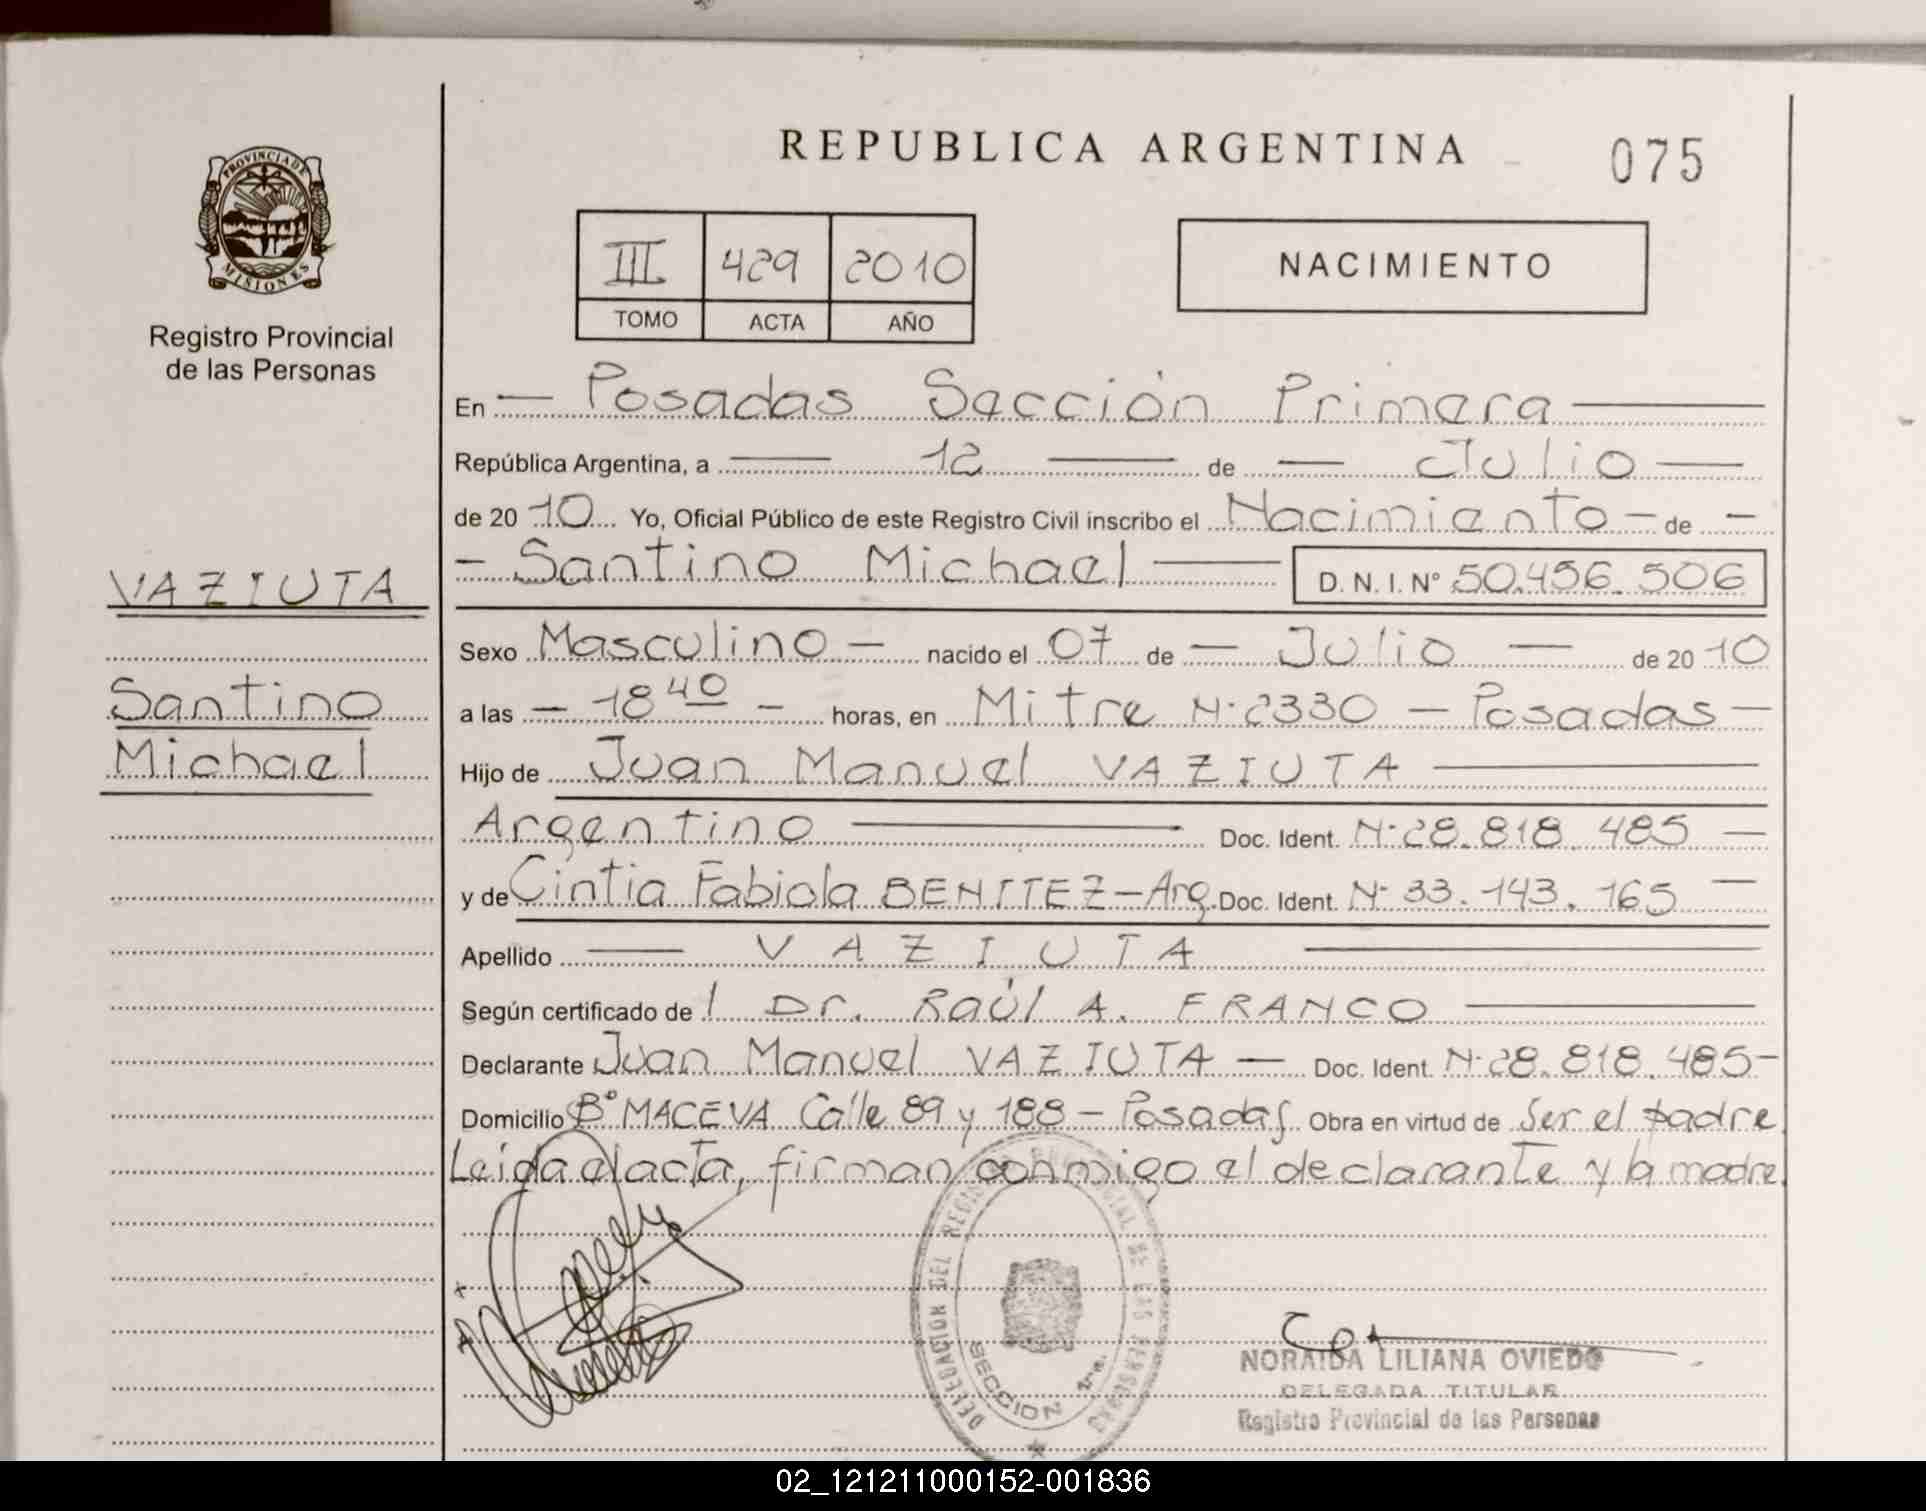 REPUBLICA ARGENTINA
075
PROVINCIA DE
MISIONES
Registro Provincial
de las Personas
III 429 2010
TOMO ACTA AÑO
NACIMIENTO
En — Posadas Sección Primera —
República Argentina, a — 12 — de — Julio —
de 20 10 Yo, Oficial Público de este Registro Civil inscribo el Nacimiento — de —
— Santino Michael — D. N. I. N° 50.456.506
VAZIUTA
Santino
Michael
Sexo Masculino — nacido el 07 de — Julio — de 20 10
a las — 18 40 — horas, en Mitre N° 2330 — Posadas —
Hijo de Juan Manuel VAZIUTA —
Argentino — Doc. Ident. N° 28.818.485 —
y de Cintia Fabiola BENITEZ — Arg. Doc. Ident. N° 33.143.165 —
Apellido — VAZIUTA —
Según certificado de l Dr. Raúl A. FRANCO —
Declarante Juan Manuel VAZIUTA — Doc. Ident. N° 28.818.485 —
Domicilio B° MACEVA Calle 89 y 188 — Posadas Obra en virtud de Ser el padre.
Leída el acta, firman conmigo el declarante y la madre.
DELEGACION DEL REGISTRO PROVINCIAL DE LAS PERSONAS
SECCION 1ra.
NORAIDA LILIANA OVIEDO
DELEGADA TITULAR
Registro Provincial de las Personas
02_121211000152-001836